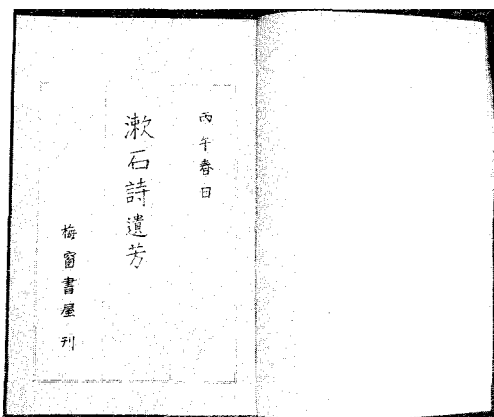 丙午春日
漱石詩遺芳
梅窗書屋刊